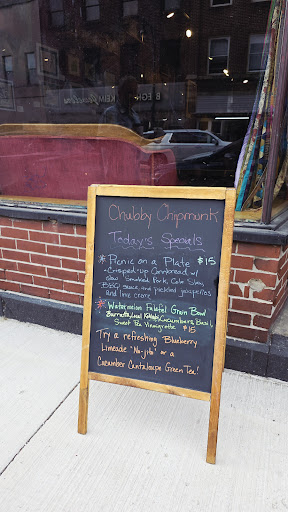 Chubby Chipmunk
Today's Specials
* Picnic on a Plate $15
-Crisped-up Cornbread w/
slow Smoked Pork, Cole Slaw,
BBQ sauce, and pickled jalapeños
and lime crema
* Watermelon Falafel Grain Bowl
Burrata, Local Cucumbers, Basil,
Sweet Pea Vinaigrette $15
Try a refreshing Blueberry
Limeade "No-jito" or a
Cucumber Cantaloupe Green Tea!